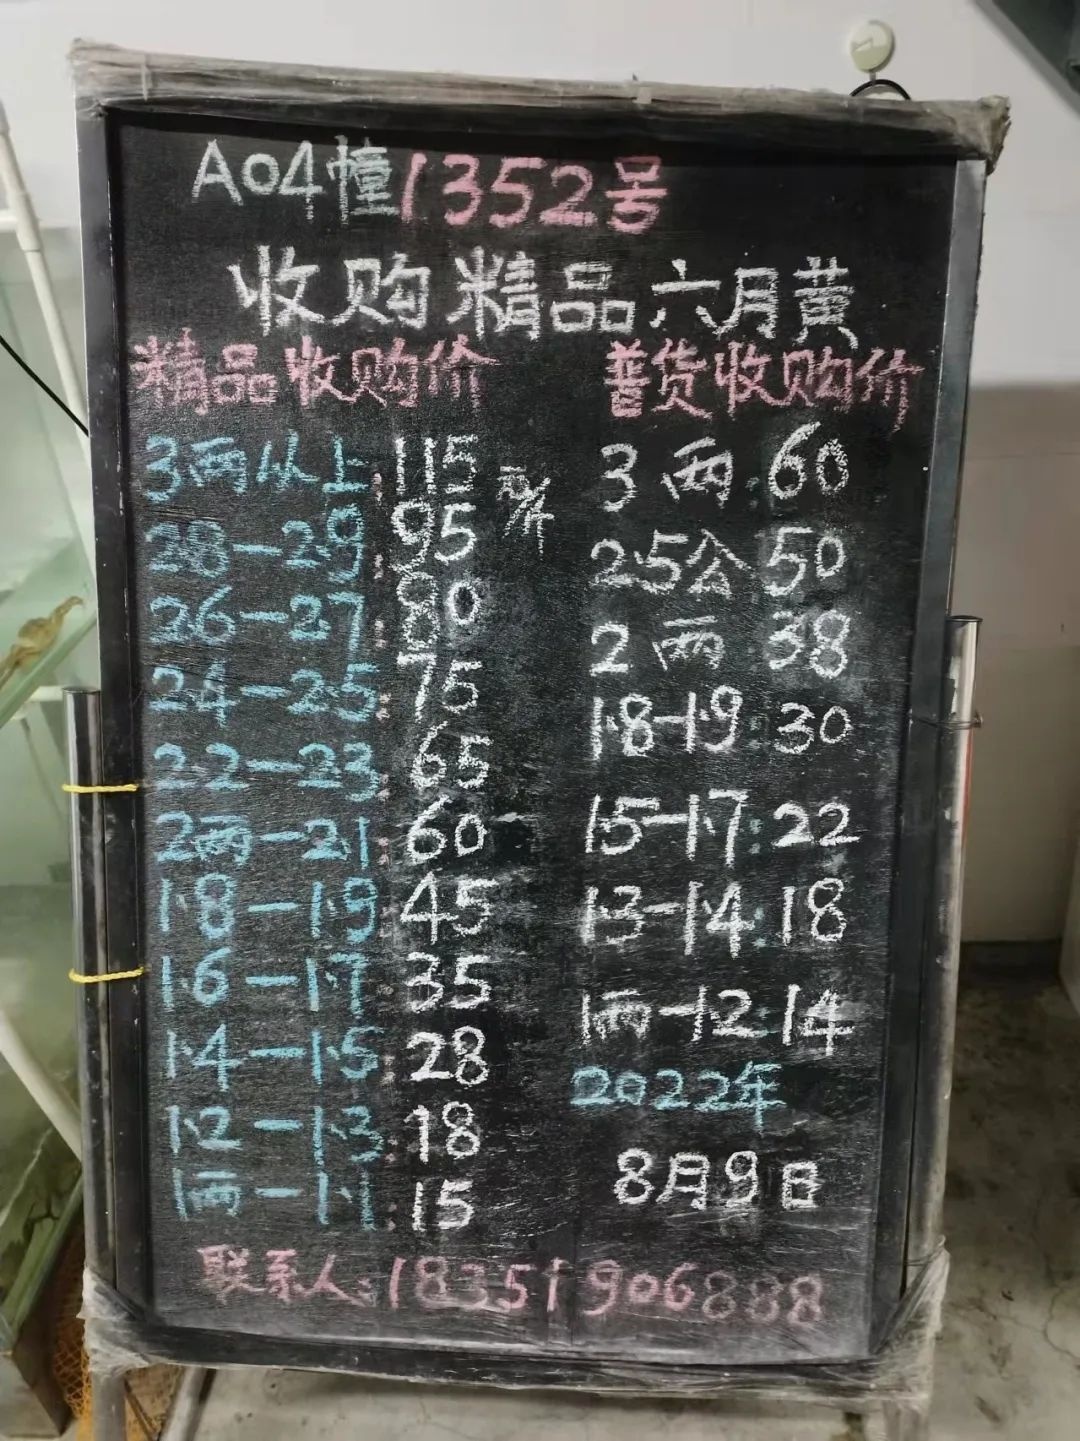 A04幢1352号
收购精品六月黄
精品收购价
3两以上:115元/斤
2.8-2.9:95
2.6-2.7:80
2.4-2.5:75
2.2-2.3:65
2两-2.1:60
1.8-1.9:45
1.6-1.7:35
1.4-1.5:28
1.2-1.3:18
1两-1.1:15
普货收购价
3两:60
2.5公:50
2两:38
1.8-1.9:30
1.5-1.7:22
1.3-1.4:18
1两-1.2:14
2022年
8月9日
联系人:18351906888